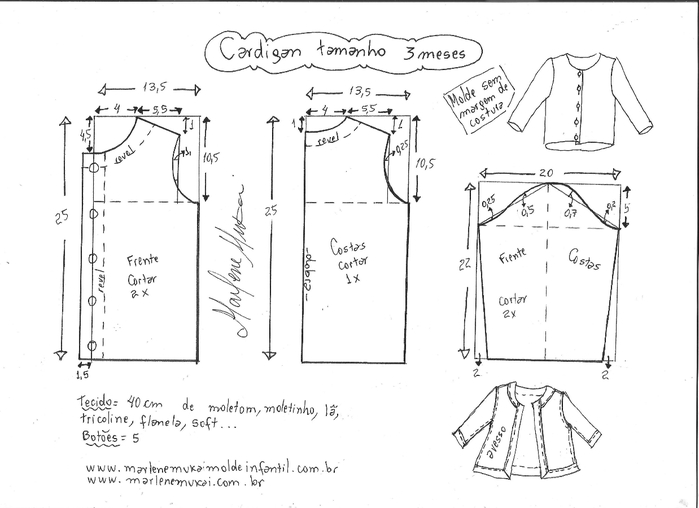 Cardigan tamanho 3 meses
Molde sem
margem de
costura
13,5
4
5,5
1
4,5
revel
1
10,5
25
revel
Frente
Cortar
2x
1,5
Marlene Mukai
13,5
4
5,5
1
1
revel
0,25
10,5
25
Costas
cortar
1x
dobra
20
0,25
0,5
0,7
0,2
5
22
Frente
Costas
cortar
2x
2
2
avesso
Tecido = 40 cm de moletom, moletinho, lã,
tricoline, flanela, soft...
Botões = 5
www.marlenemukaimoldeinfantil.com.br
www.marlenemukai.com.br